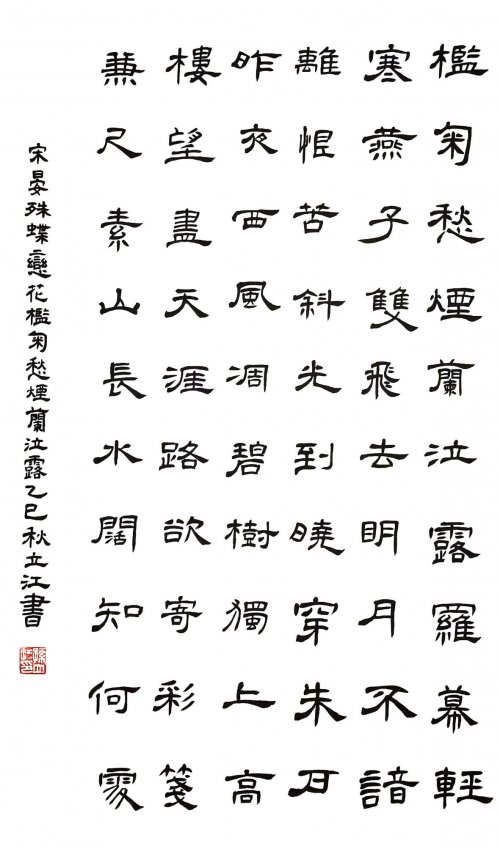 檻菊愁煙蘭泣露羅幕輕
寒燕子雙飛去明月不諳
離恨苦斜光到曉穿朱戶
昨夜西風凋碧樹獨上高
樓望盡天涯路欲寄彩箋
兼尺素山長水闊知何處
宋晏殊蝶戀花檻菊愁煙蘭泣露乙巳秋立江書